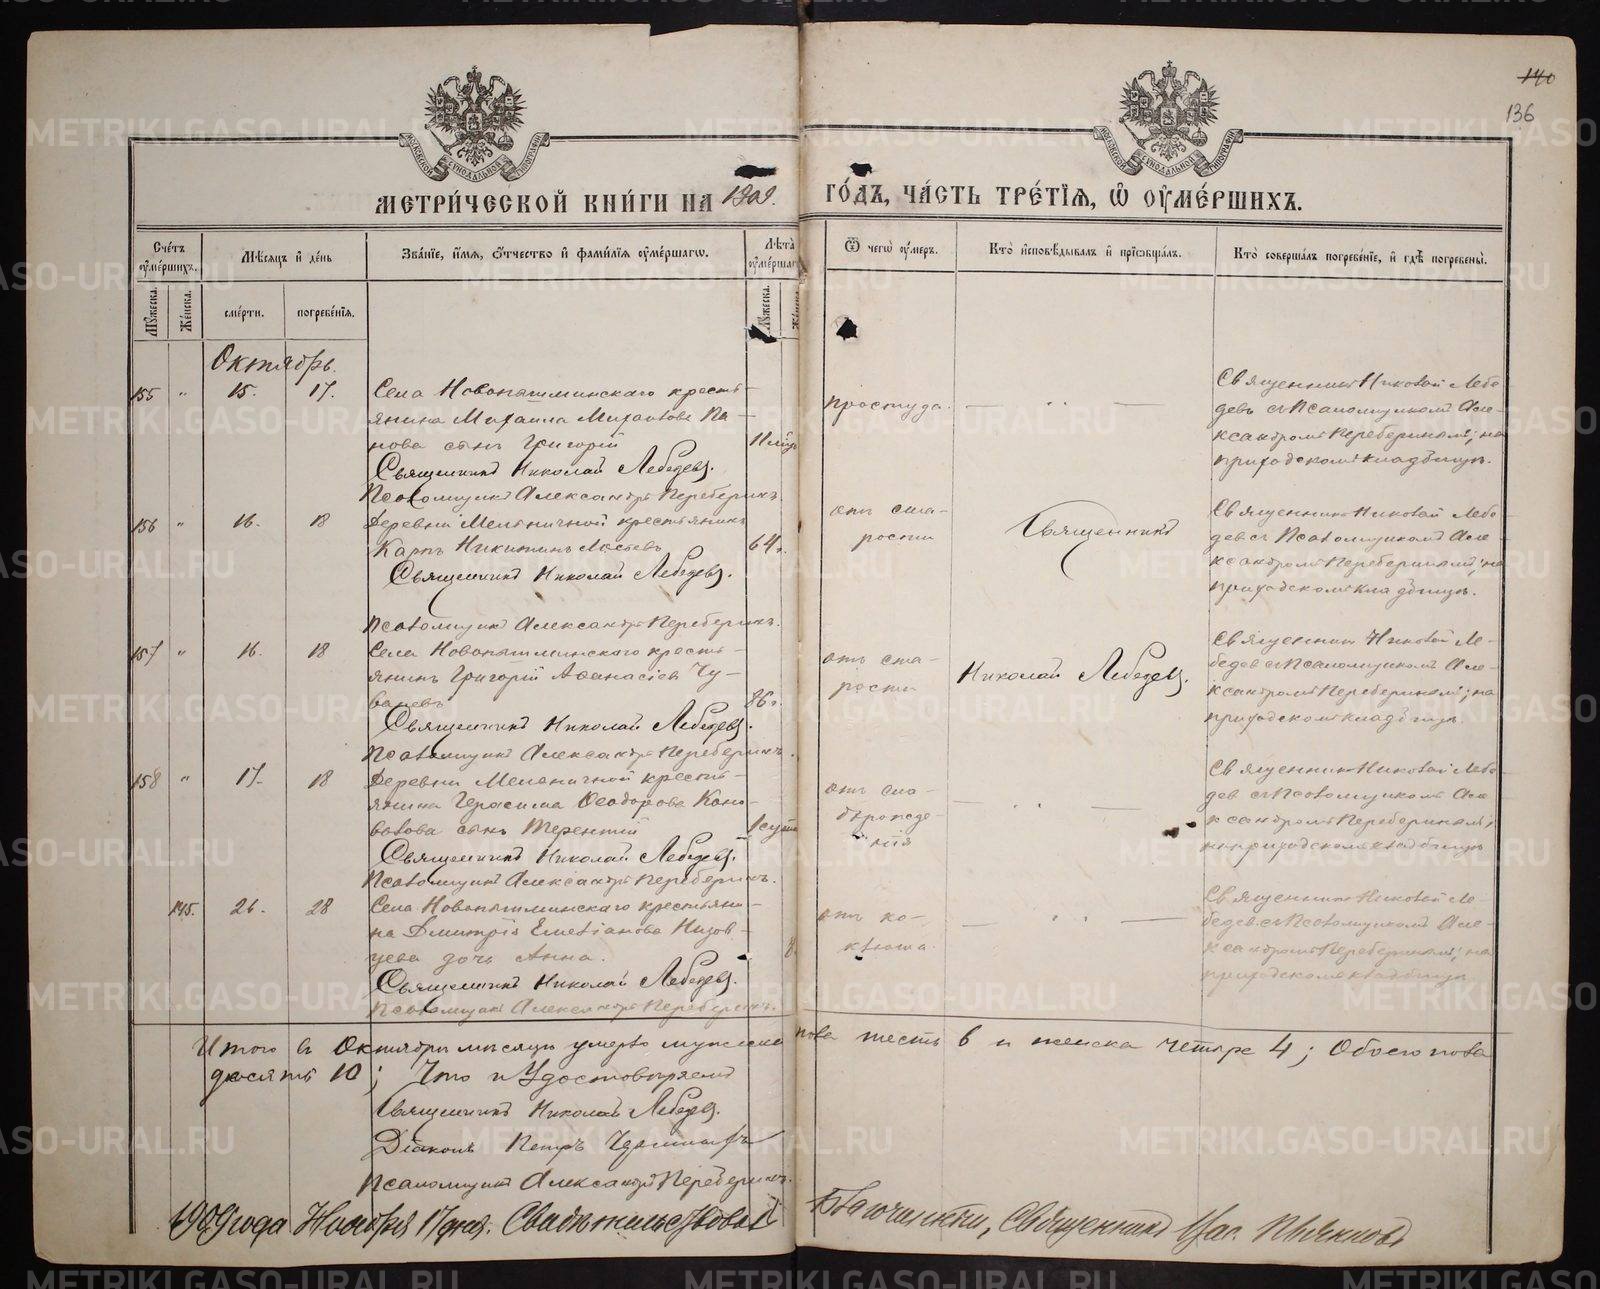 140
136
МОСКОВСКОЙ СУНОДАЛЬНОЙ ТИПОГРАФІИ
МОСКОВСКОЙ СУНОДАЛЬНОЙ ТИПОГРАФІИ
МЕТРИ́ЧЕСКОЙ КНИ́ГИ НА 1909. ГО́ДЪ, ЧА́СТЬ ТРЕ́ТІѦ, Ѡ҆ ОУ҆МЕ́РШИХЪ.
Сче́тъ оу҆ме́ршихъ.
Му́жеска.
Же́нска.
Мѣ́сяцъ и҆ де́нь
сме́рти.
погребе́нія.
Зва́ніе, и҆́мя, ѻ҆́тчество и҆ фами́лія оу҆ме́ршагѡ.
Лѣ́та оу҆ме́ршагѡ
Му́жеска.
Ѿ чегѡ̀ оу҆́меръ.
Кто̀ и҆сповѣ́дывалъ и҆ прїѡбща́лъ.
Кто̀ соверша́лъ погребе́ніе, и҆ гдѣ̀ погребены̀.
Октябрь.
155 " 15. 17.
Села Новопышминскаго кресть-
янина Михаила Михаилова Па-
нова сынъ Григорій
Священникъ Николай Лебедевъ.
Псаломщикъ Александръ Переберинъ.
простуда.
Священникъ Николай Лебе-
девъ съ Псаломщикомъ Але-
ксандромъ Переберинымъ; на
приходскомъ кладбищѣ.
156 " 16. 18
Деревни Мельничной крестьянинъ
Карпъ Никитинъ
64 г.
Священникъ Николай Лебедевъ.
Псаломщикъ Александръ Переберинъ.
отъ ста-
рости
Священникъ
Священникъ Николай Лебе-
девъ съ Псаломщикомъ Але-
ксандромъ Переберинымъ; на
приходскомъ кладбищѣ.
157 " 16. 18
Села Новопышминскаго кресть-
янинъ Григорій Афанасіевъ Чу-
валевъ
86 г.
Священникъ Николай Лебедевъ.
Псаломщикъ Александръ Переберинъ.
отъ ста-
рости
Николай Лебедевъ.
Священникъ Николай Ле-
бедевъ съ Псаломщикомъ Але-
ксандромъ Переберинымъ; на
приходскомъ кладбищѣ.
158 " 17. 18
Деревни Мельничной кресть-
янина Герасима Ѳеодорова Коно-
валова сынъ Терентій
Священникъ Николай Лебедевъ.
Псаломщикъ Александръ Переберинъ.
отъ сла-
борожде-
нія
Священникъ Николай Лебе-
девъ съ Псаломщикомъ Але-
ксандромъ Переберинымъ;
на приходскомъ кладбищѣ
145. 26. 28
Села Новопышминскаго крестьяни-
на Димитрія Емеліанова Низов-
цева дочь Анна.
Священникъ Николай Лебедевъ.
Псаломщикъ Александръ Переберинъ.
отъ ко-
клюша.
Священникъ Николай Ле-
бедевъ съ Псаломщикомъ Але-
ксандромъ Переберинымъ; на
приходскомъ кладбищѣ.
Итого въ Октябрѣ мѣсяцѣ умерло мужеска пола шесть 6 и женска четыре 4; Обоего пола
десять 10; Что и Удостовѣряемъ
Священникъ Николай Лебедевъ.
Діаконъ Петръ
Псаломщикъ Александръ Переберинъ.
1909 года Ноября 17 дня. Свидѣтельствовалъ Священникъ
METRIKI.GASO-URAL.RU